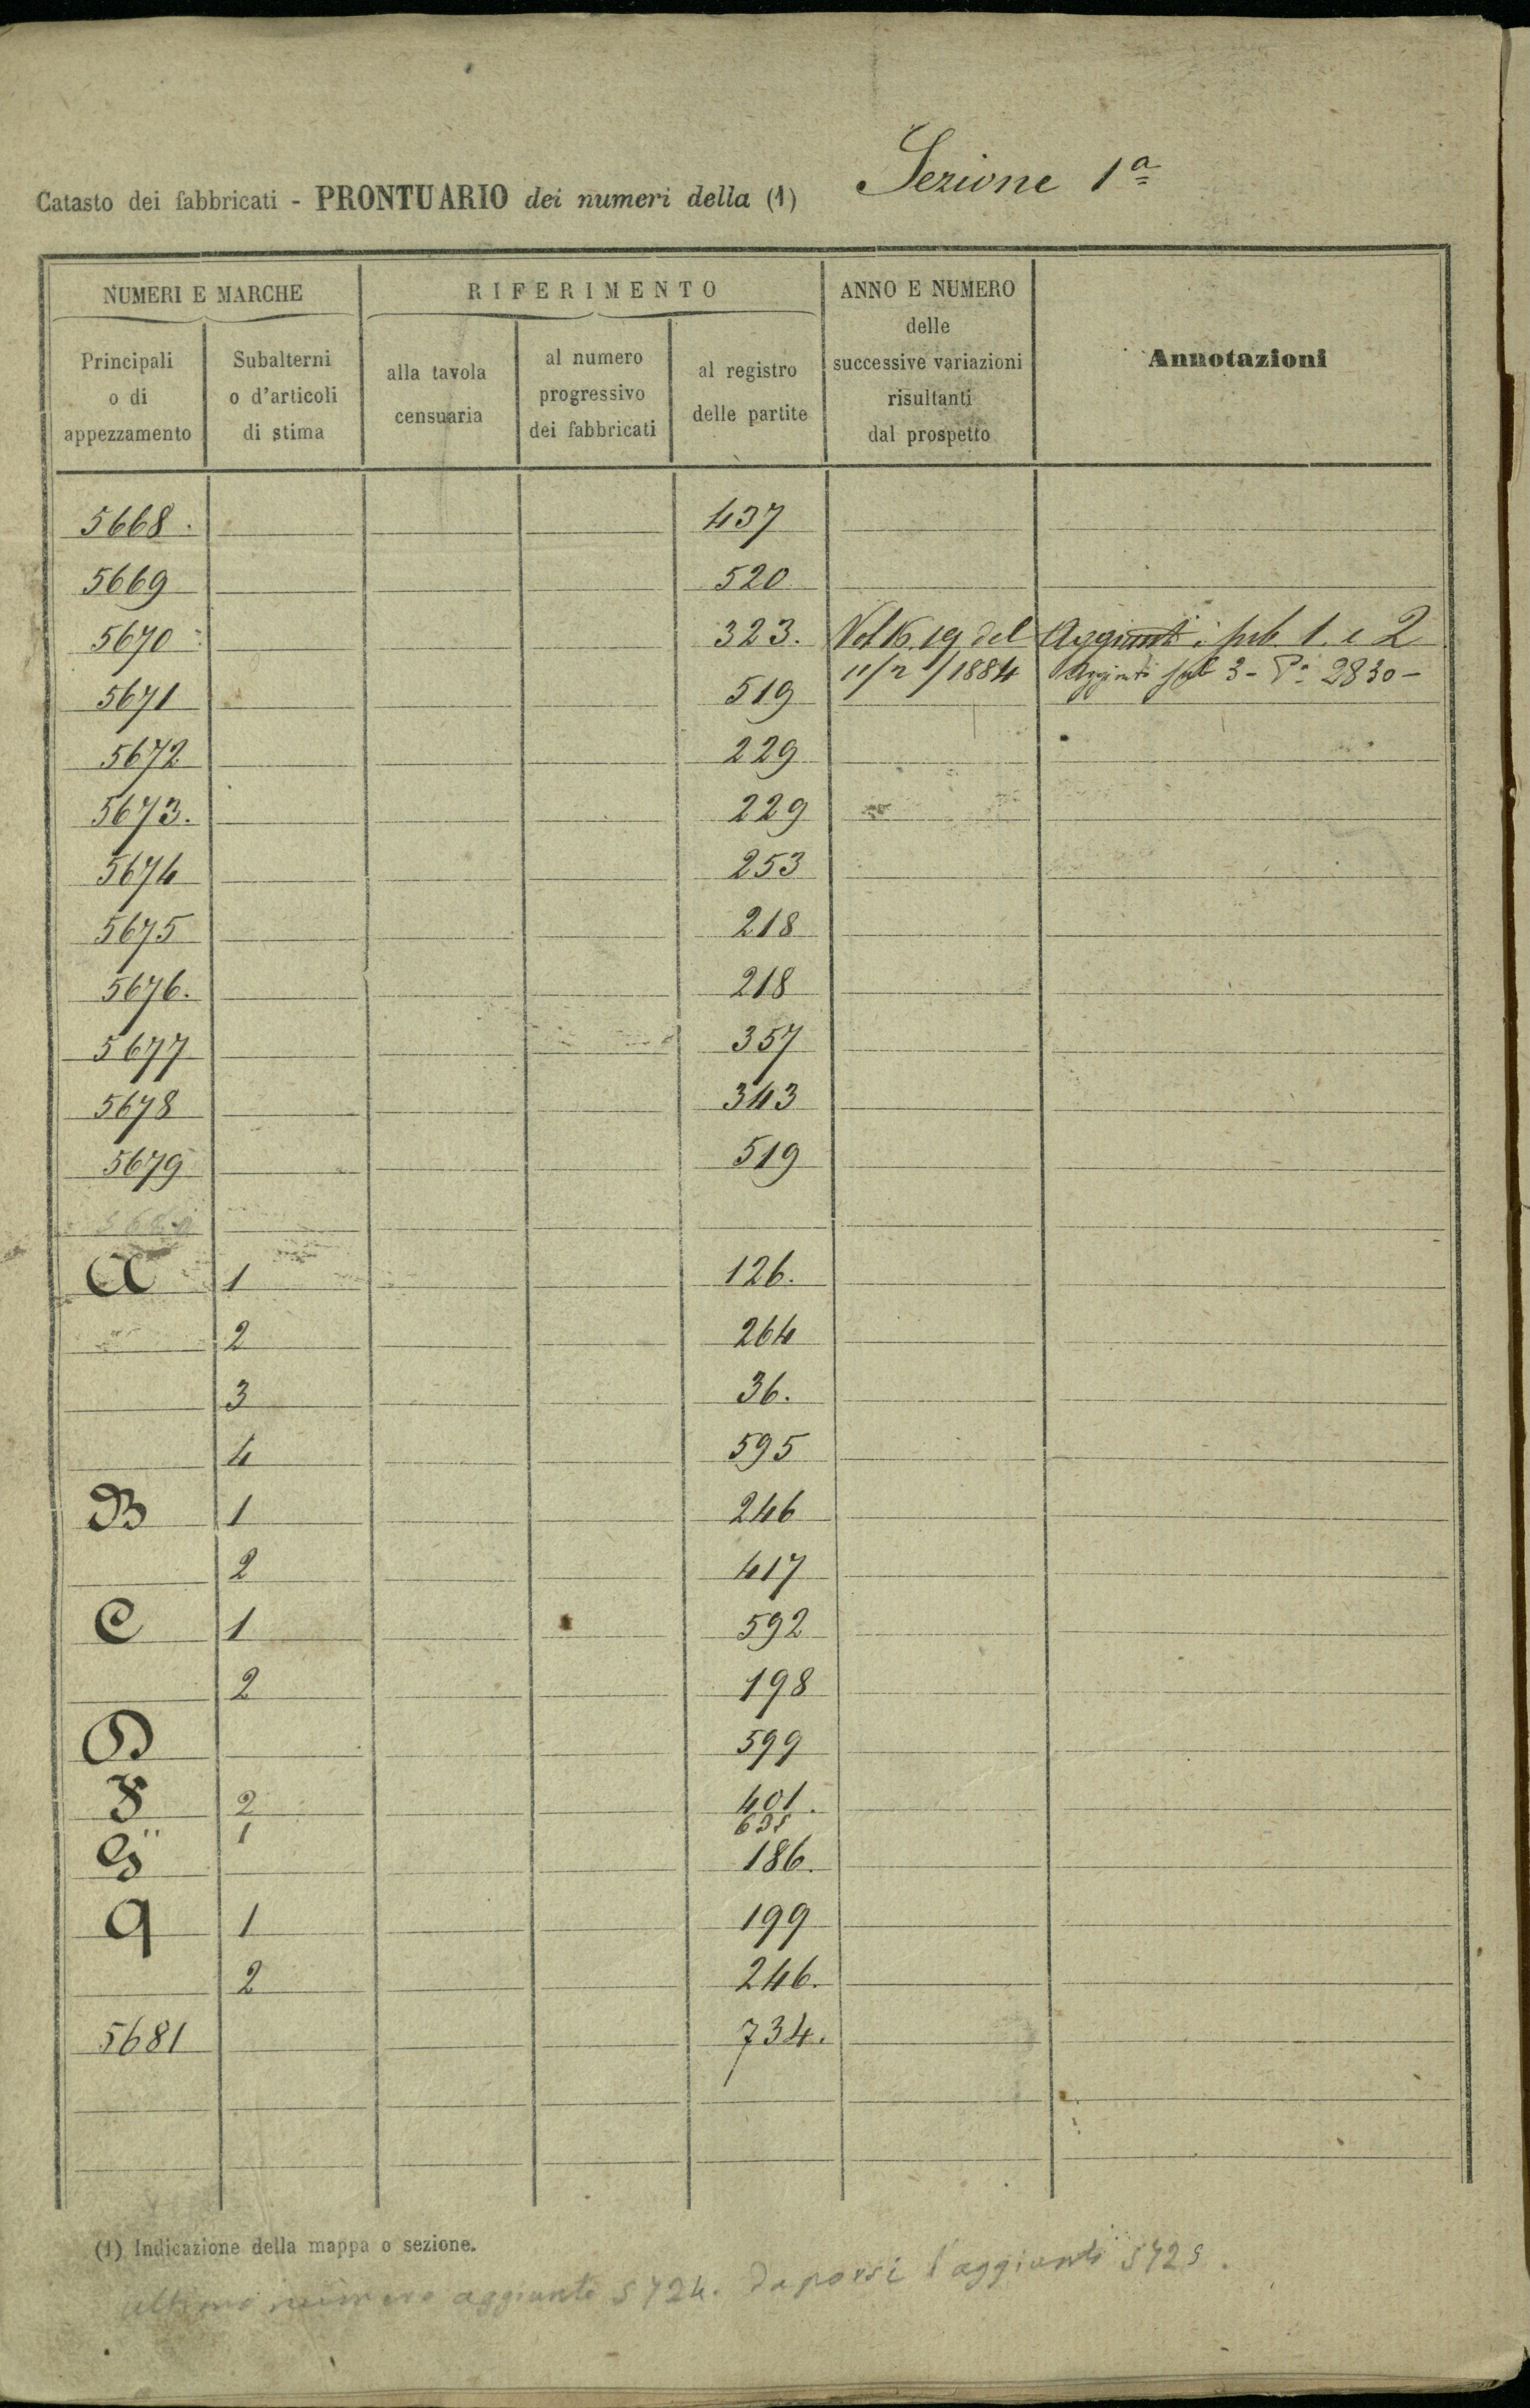 Sezione 1ª
Catasto dei fabbricati - PRONTUARIO dei numeri della (1)
NUMERI E MARCHE
RIFERIMENTO
ANNO E NUMERO
delle
successive variazioni
risultanti
dal prospetto
Annotazioni
Principali
o di
appezzamento
Subalterni
o d'articoli
di stima
alla tavola
censuaria
al numero
progressivo
dei fabbricati
al registro
delle partite
5668. 437
5669 520
5670 323. 19 del Aggiunti i sub 1. e 2
5671 519 11/2/1884 Aggiunti sub 3 - 2830 -
5672 229
5673. 229
5674 253
5675 218
5676. 218
5677 357
5678 343
5679 519
A 1 126.
2 264
3 36.
4 595
B 1 246
2 417
C 1 592
2 198
D 599
F 2 401.
1 635
G 186.
q 1 199
2 246.
5681 734.
(1) Indicazione della mappa o sezione.
ultimo numero aggiunto 5724. Da porsi l'aggiunto 5725.